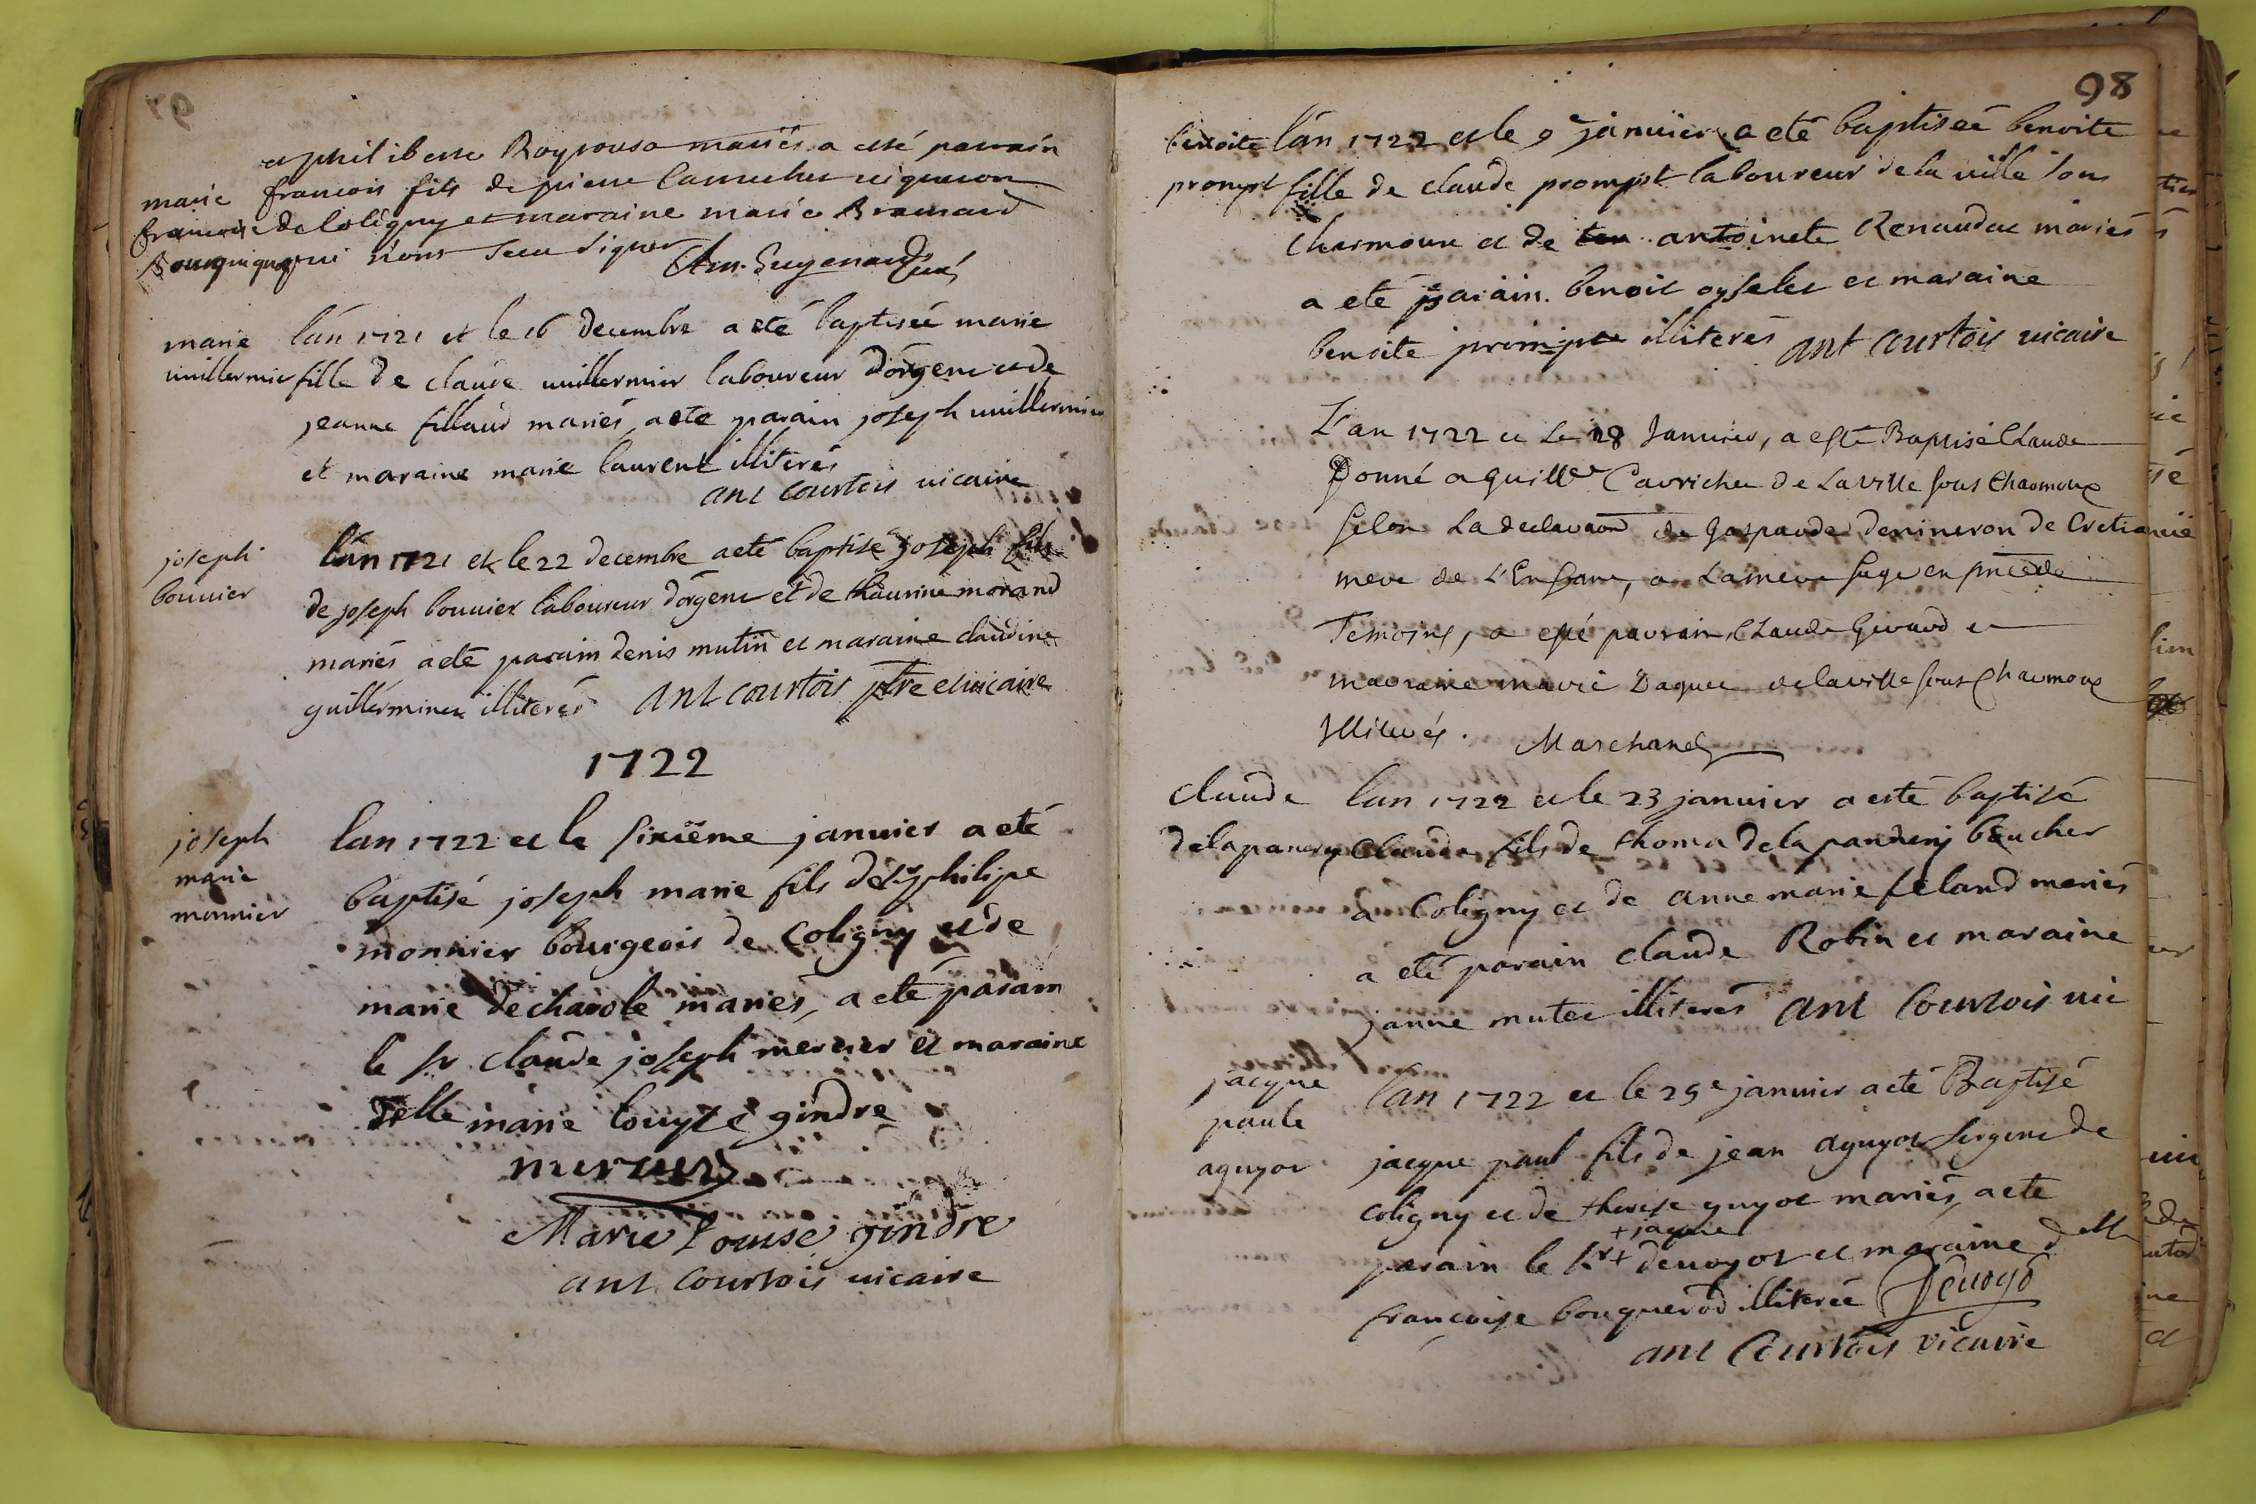 et philiberte Royrousa mariés a esté parrain
marie francois fils de pierre Cannechet vigneron
francoise de Coligny et maraine marie Bramard
Bourguignon qui n'ont sceu signer
marie l'an 1721 et le 16 decembre a eté baptiseé marie
vuillermier fille de claude vuillermier laboureur d'orgent et de
jeanne fillaud mariés, a ete parain joseph vuillermier
et maraine marie laurent illiterés
ant courtois vicaire
joseph l'an 1721 et le 22 decembre a eté baptisé joseph fils
bouvier de joseph bouvier laboureur d'orgent et de thaurine morand
mariés a eté parain denis mutin et maraine claudine
guillerminet illiterés ant courtois ptre et vicaire
1722
joseph lan 1722 et le sixiême janvier a eté
marie baptisé joseph marie fils de sr philipe
monnier monnier bourgeois de Coligny et de
marie decharole mariés, a eté parain
le sr claude joseph mercier et maraine
delle marie louyse gindre
mercier
Marie Louise gindre
ant Courtois vicaire
98
benoite l'an 1722 et le 9e janvier a eté baptiseé benoite
prompt fille de claude prompt laboureur de la ville sous
charmoux et de antoinete Renaudat mariés
a eté parain benoit oyselet et maraine
benoite prompt illiterés ant courtois vicaire
L'an 1722 et le 28 Janvier, a esté Baptisé Claude
Donné a Guille Cavrichet de Laville sous Chaomoux
selon La declaraon de Gasparde denineron de Cretia
mere de L'Enfant, a Lamere sage en
Temoins, a esté parrain Claude Girard et
marraine marie Daguet de laville sous Chaomoux
Illiterés. Marchand
claude lan 1722 et le 23 janvier a esté baptisé
delapanery Claude fils de thoma delapanery boucher
a Coligny et de anne marie feland mariés
a eté parain claude Robin et maraine
janne mutet illiterés ant Courtois vic
jacque lan 1722 et le 29e janvier a eté Baptisé
paule jacque paul fils de jean aguyot sergent de
aguyot coligny et de therese guyot mariés, a ete
+ jacque
parain le sr + devoyot et maraine delle
francoise bouquerod illiterée Devoyo
ant Courtois vicaire